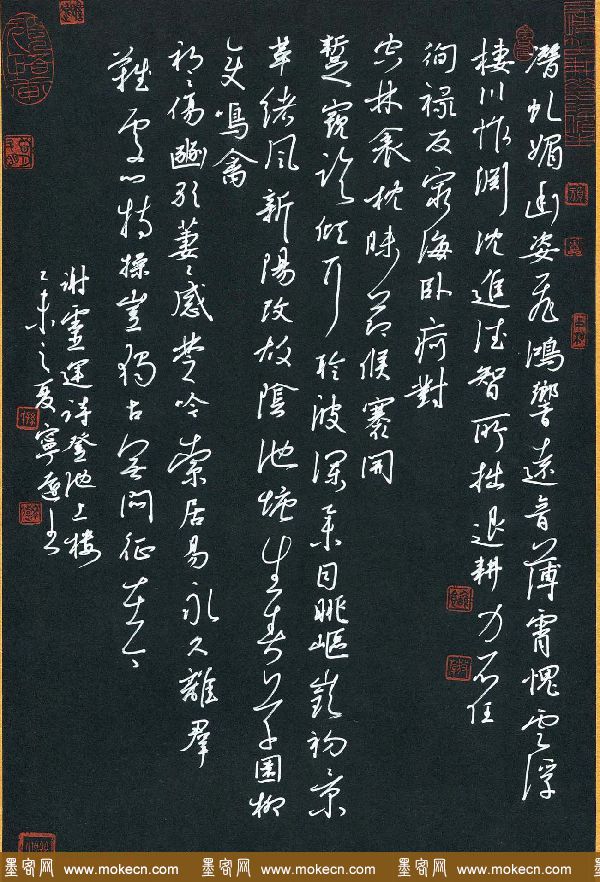 潛虬媚幽姿飛鴻響遠音薄霄愧雲浮
棲川怍淵沈進德智所拙退耕力不任
徇祿反窮海臥疴對
空林衾枕昧節候褰開
蹔窺臨傾耳聆波瀾舉目眺嶇嶔初景
革緒風新陽改故陰池塘生春草園柳
變鳴禽
祁祁傷豳歌萋萋感楚吟索居易永久離羣
難處心持操豈獨古無悶征在今
謝靈運詩登池上樓
之夏寧
墨客网 www.mokecn.com 墨客网 www.mokecn.com 墨客网 www.mokecn.com